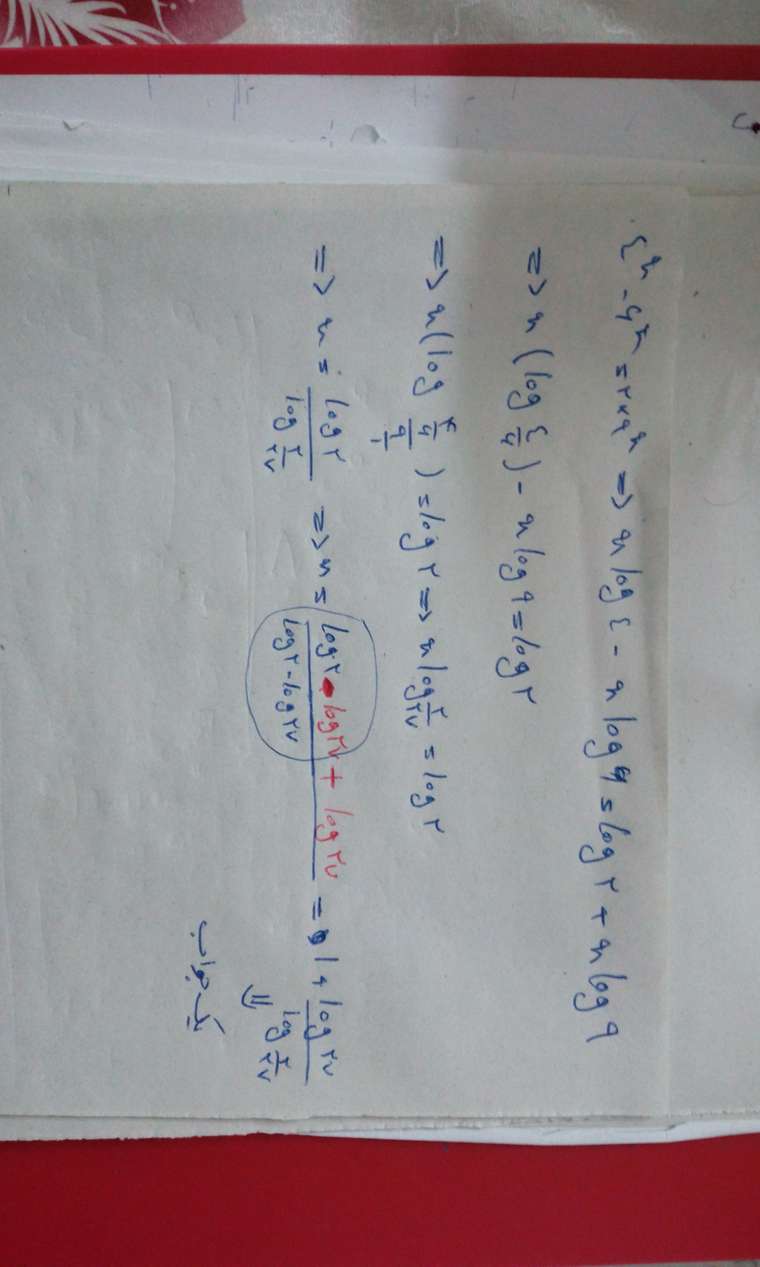 ۴^x - ۶^x = ۲×۹^x => x log ۴ - x log ۶ = log ۲ + x log ۹
=> x (log ۴/۶) - x log ۹ = log ۲
=> x (log (۴/۶)/(۹/۱)) = log ۲ => x log ۲/۲۷ = log ۲
=> x = log ۲ / log ۲/۲۷ => x = (log ۲ - log ۲۷ + log ۲۷) / (log ۲ - log ۲۷) = ۱ + log ۲۷ / log ۲/۲۷
⇓
یک جواب